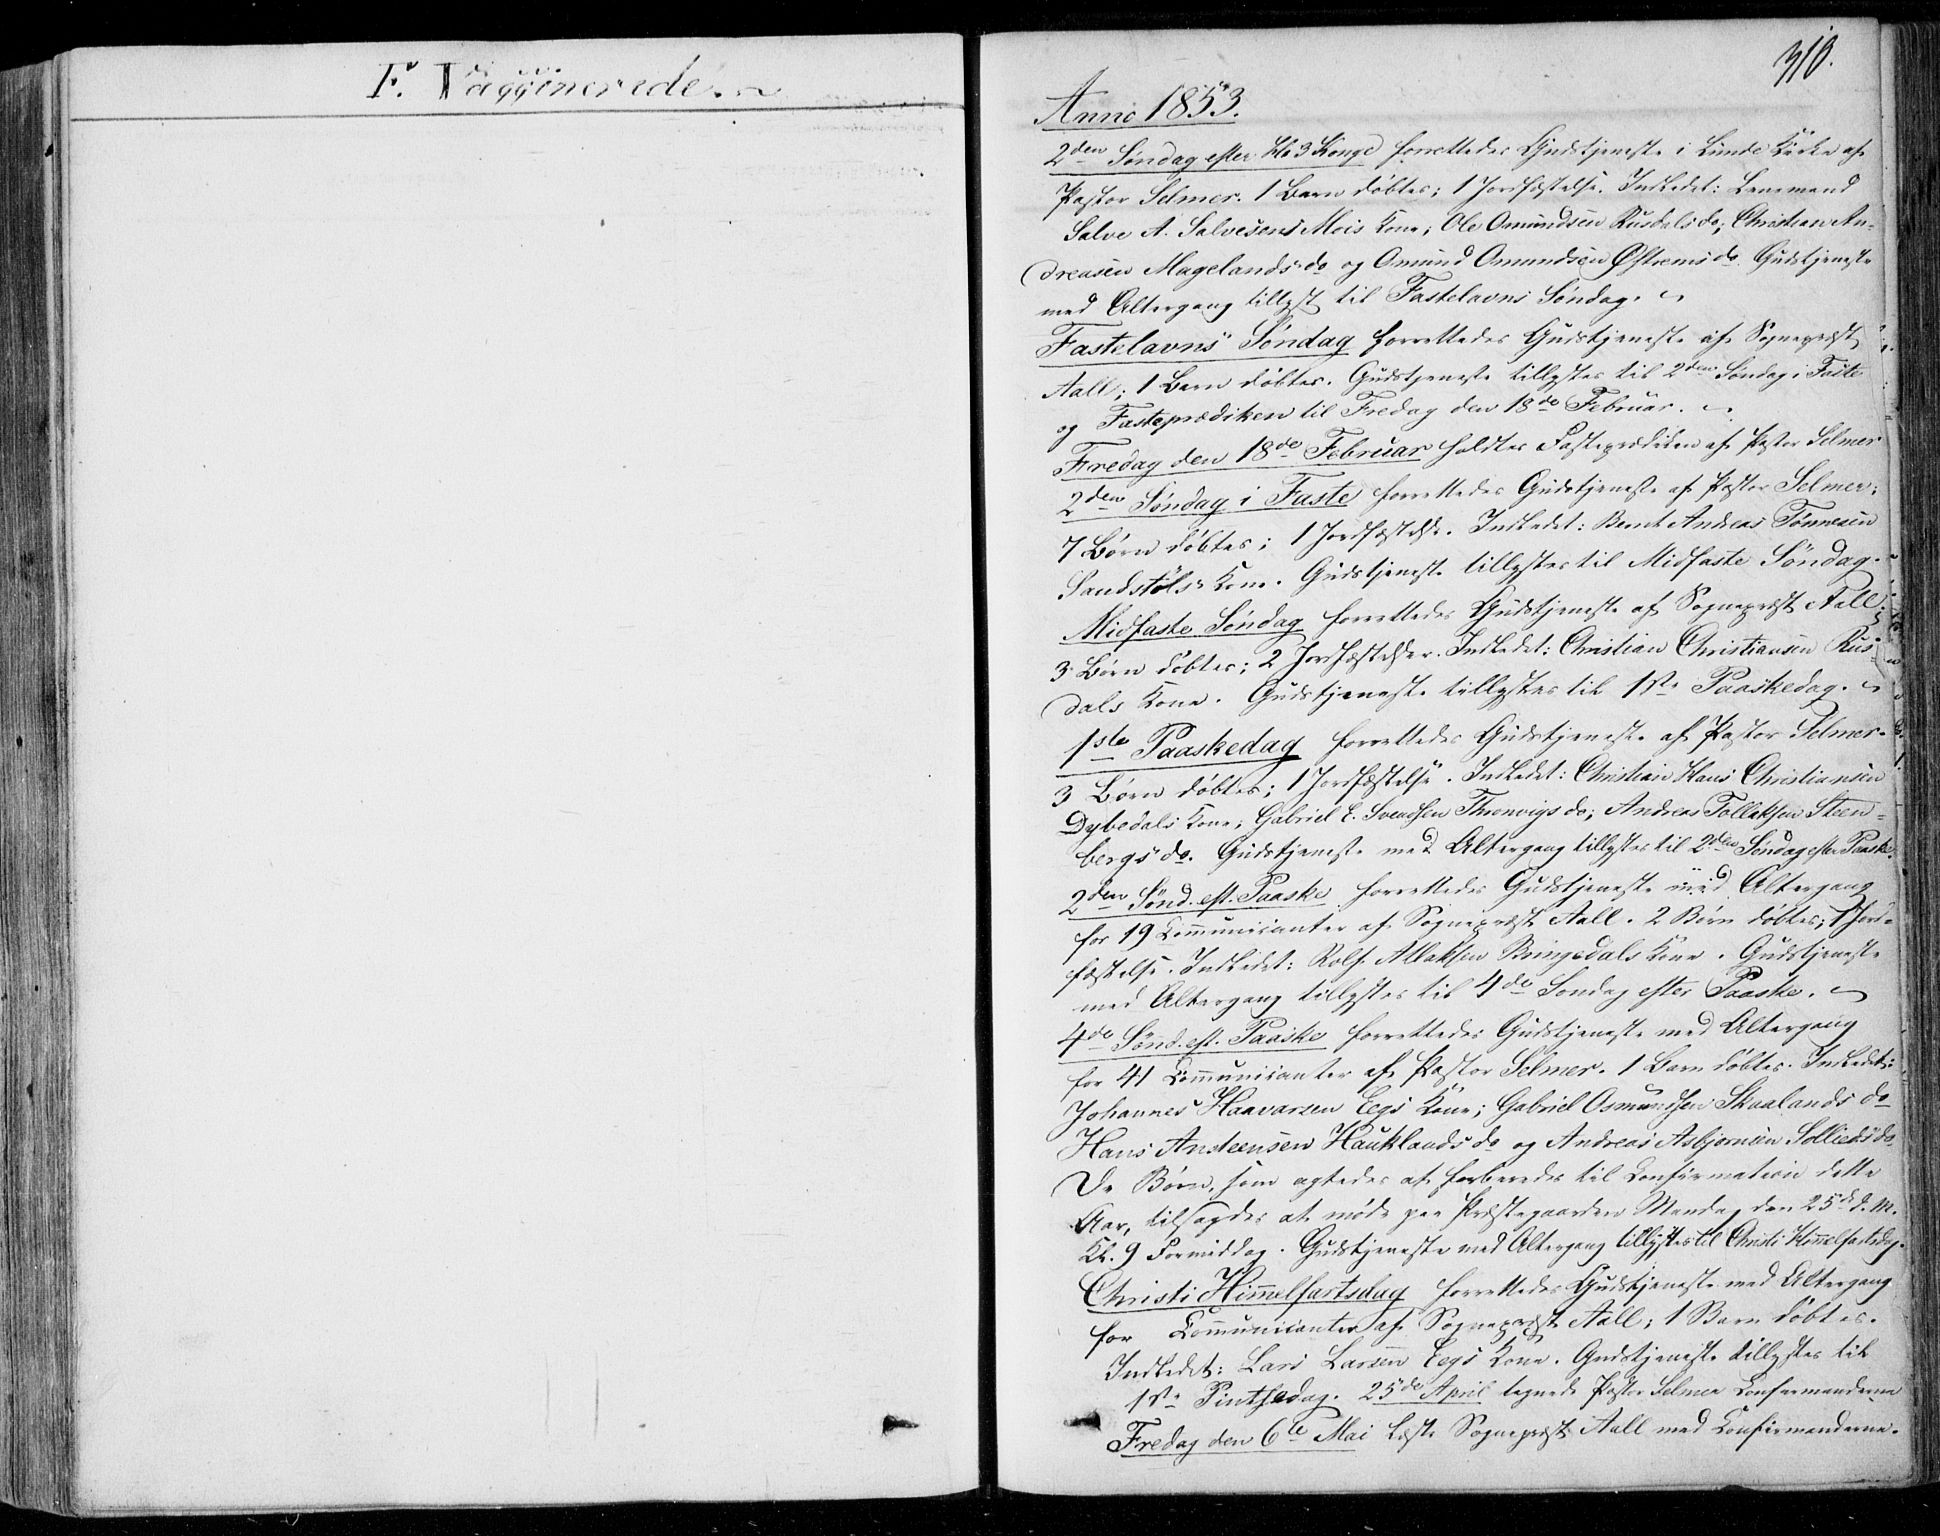 F. Vaccinerede.
310.
Anno 1853.
2den Søndag efter Hl 3 Konge forrettedes Gudstjeneste i Lunde Kirke af
Pastor Selmer. 1 Barn døbtes; 1 Jordfæstelse. Indledet: Lensmand
Salve A. Salvesens Mois Kone; Ole Omundsen Rusdals do; Christian An-
dreasen Magelands do og Omund Omundsen Østrems do. Gudstjeneste
med Altergang tillyst til Fastelavns Søndag.
Fastelavns Søndag forrettedes Gudstjeneste af Sognepræst
Aall; 1 Barn døbtes. Gudstjeneste tillystes til 2den Søndag i Faste
og Fasteprædiken til Fredag den 18de Februar.
Fredag den 18de Februar holdtes Fasteprædiken af Pastor Selmer
2den Søndag i Faste forrettedes Gudstjeneste af Pastor Selmer;
7 Børn døbtes; 1 Jordfæstelse. Indledet: Bernt Andreas Tønnesen
Sandstøls Kone. Gudstjeneste tillystes til Midfaste Søndag.
Midfaste Søndag forrettedes Gudstjeneste af Sognepræst Aall;
3 Børn døbtes; 2 Jordfæstelser. Indledet: Christian Christiansen Rus-
dals Kone. Gudstjeneste tillystes til 1ste Paaskedag.
1ste Paaskedag forrettedes Gudstjeneste af Pastor Selmer.
3 Børn døbtes; 1 Jordfæstelse. Indledet: Christian Hans Christiansen
Dybedals Kone; Gabriel E. Svendsen Thronvigs do; Andreas Tolleksen Steen-
bergs do. Gudstjeneste med Altergang tillystes til 2den Søndag efter Paaske.
2den Sønd. eft. Paaske forrettedes Gudstjeneste med Altergang
for 19 Communicanter af Sognepræst Aall. 2 Børn døbtes; 1 Jord-
fæstelse. Indledet: Rolf Atlaksen Bringedals Kone. Gudstjeneste
med Altergang tillystes til 4de Søndag efter Paaske.
4de Sønd. eft. Paaske forrettedes Gudstjeneste med Altergang
for 41 Communicanter af Pastor Selmer. 1 Barn døbtes. Indledet:
Johannes Haavarsen Eegs Kone; Gabriel Osmundsen Skaalands do
Hans Ansteensen Hauklands do og Andreas Asbjørnsen Sollieds do
De Børn, som agtedes at forberedes til Confirmation dette
Aar, tilsagdes at møde paa Præstegaarden Mandag den 25de d. M.
Kl. 9 Formiddag. Gudstjeneste med Altergang tillystes til Christi Himmelfartsdag.
Christi Himmelfartsdag forrettedes Gudstjeneste med Altergang
for Communicanter af Sognepræst Aall; 1 Barn døbtes.
Indledet: Lars Larsen Eegs Kone. Gudstjeneste tillystes til
1ste Pintsedag. 25de April tegnede Pastor Selmer Confirmanderne
Fredag den 6te Mai læste Sognepræst Aall med Confirmanderne.